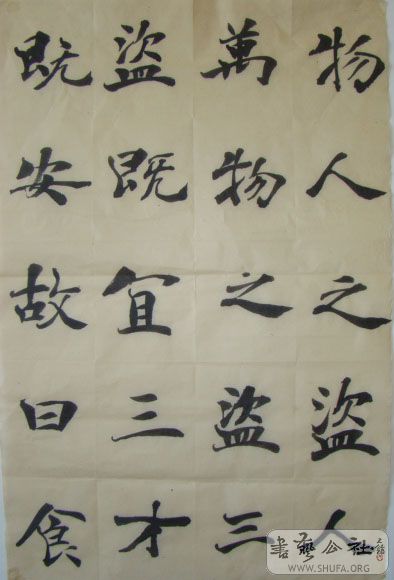 物人之盜人
萬物之盜三
盜既宜三才
既安故曰食
書藝公社
WWW.SHUFA.ORG